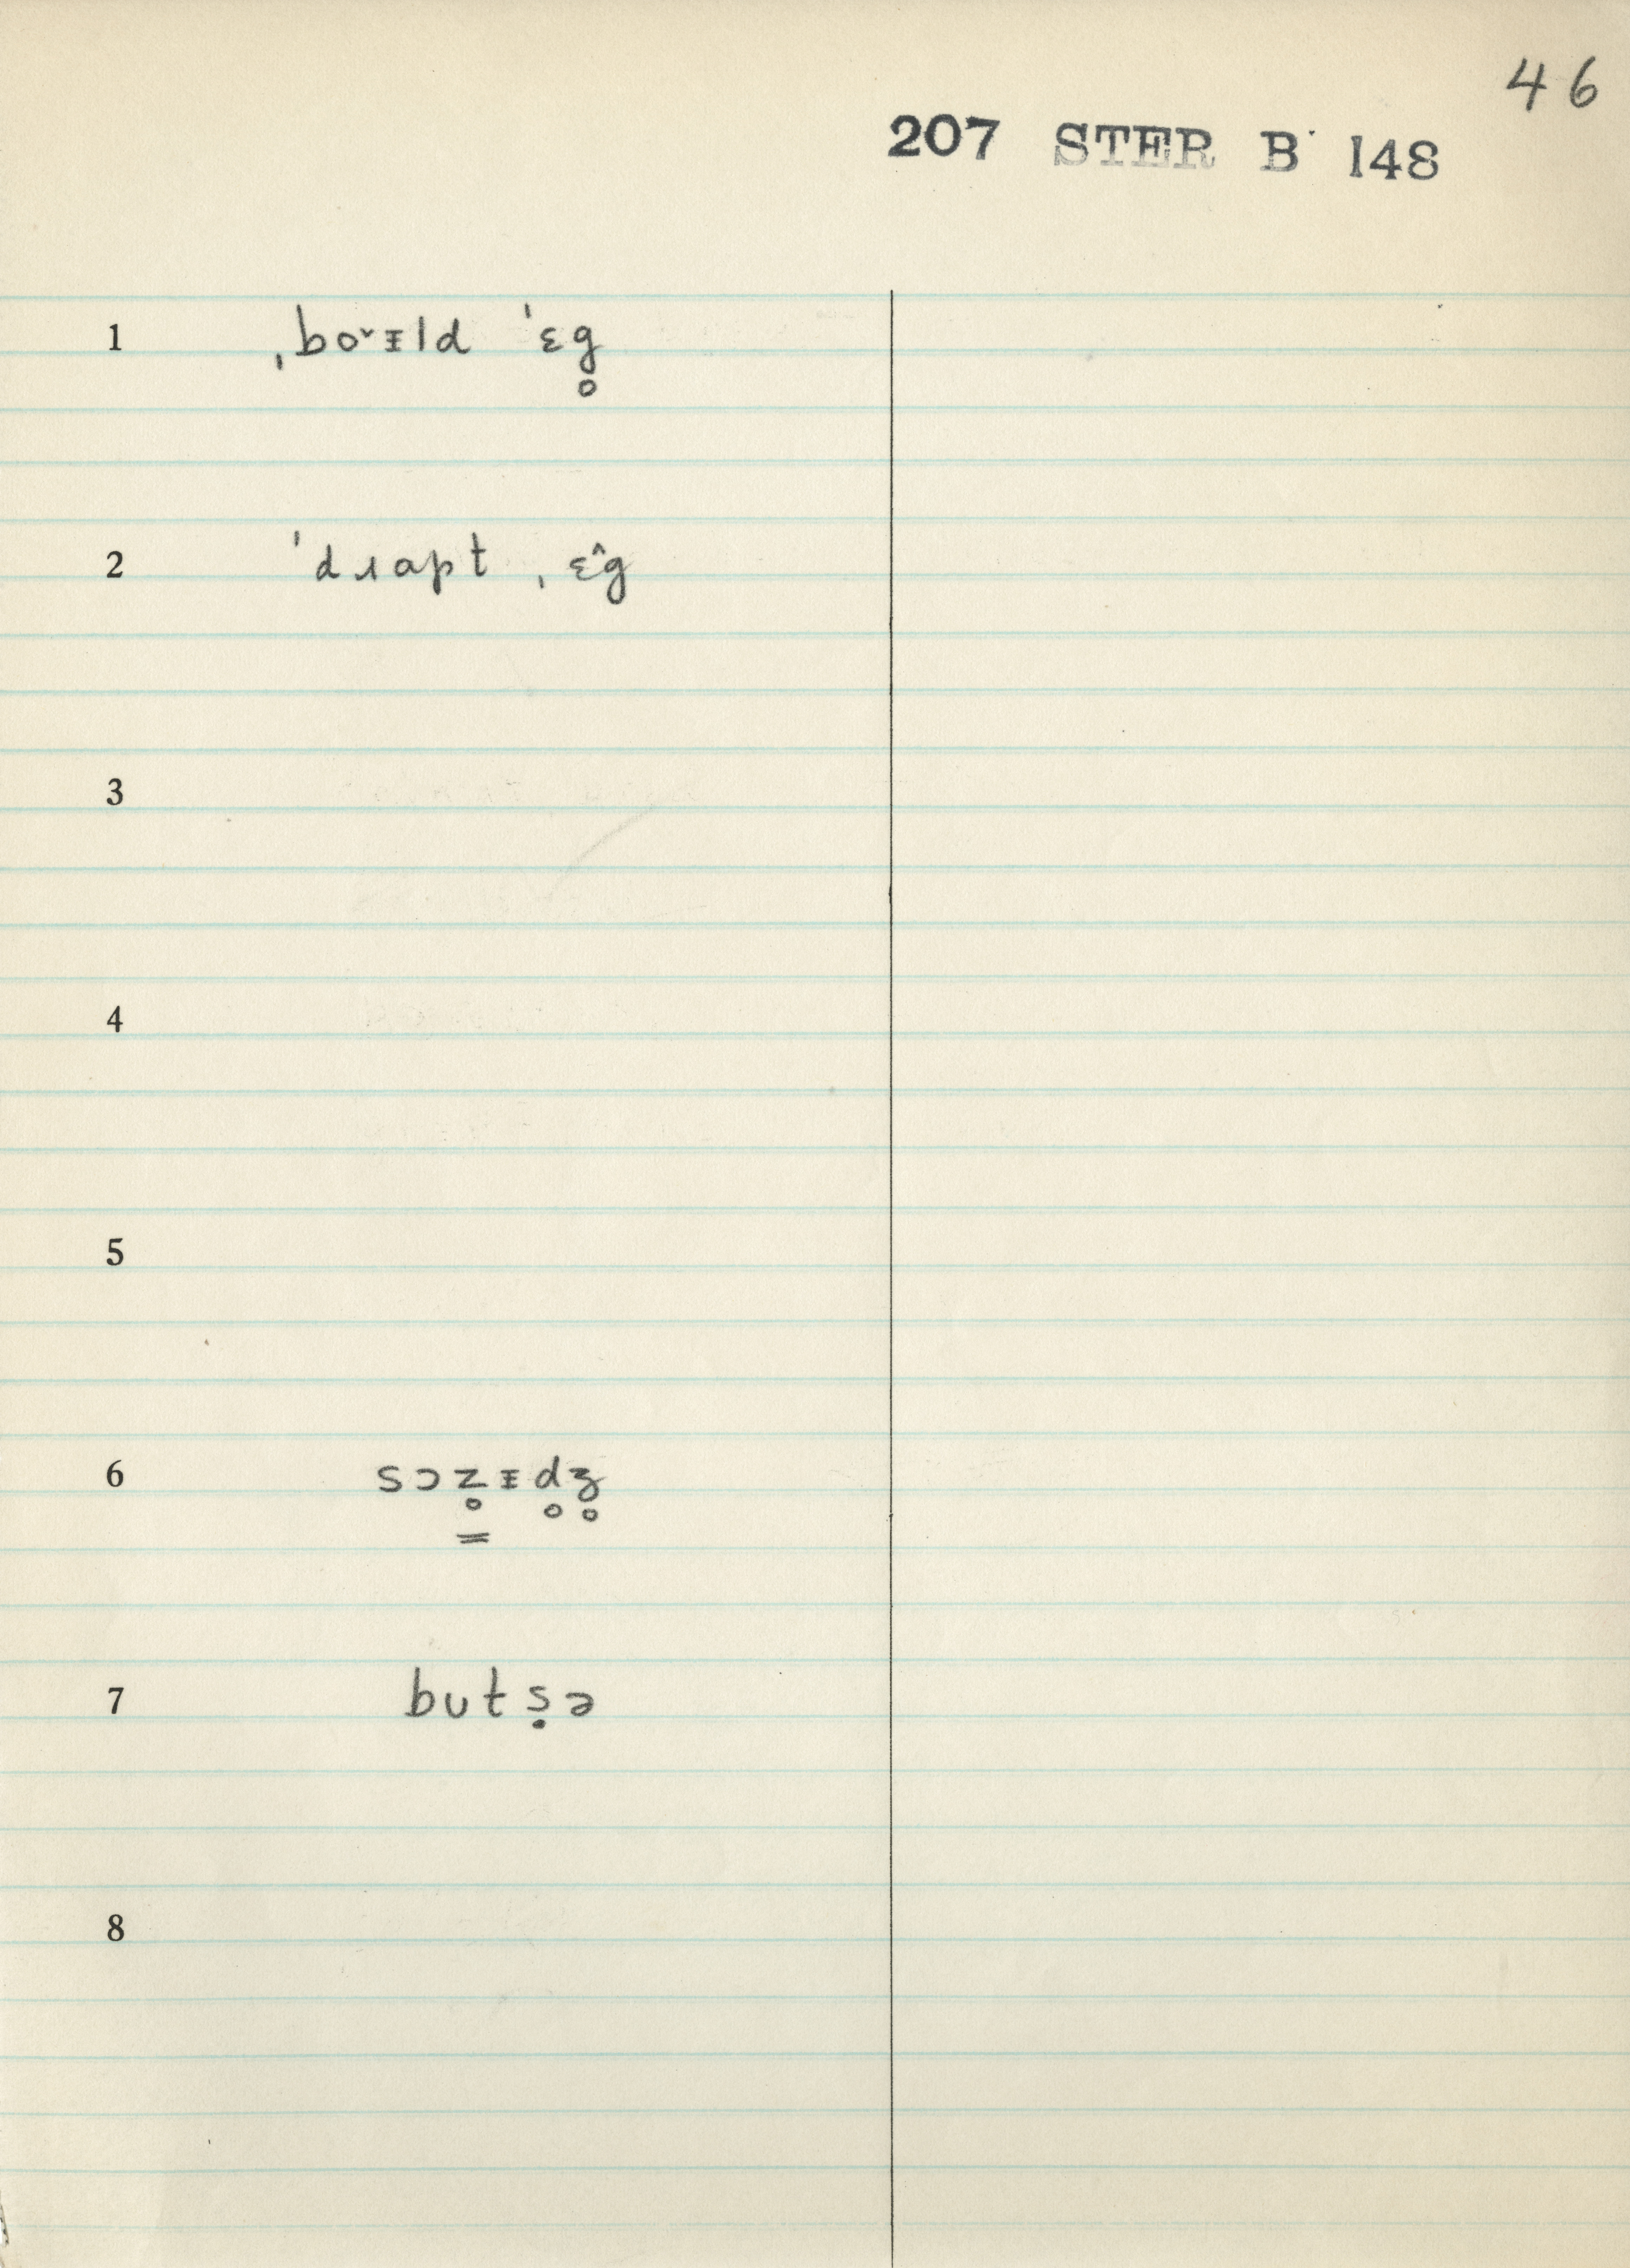 46
207 STER B 148
1 ˌbo˅ᵻld ˈɛg̥
2 ˈdɹapt ˌɛ^g
3
4
5
6 sɔz̥ᵻd̥ʒ̥
7 butṣə
8